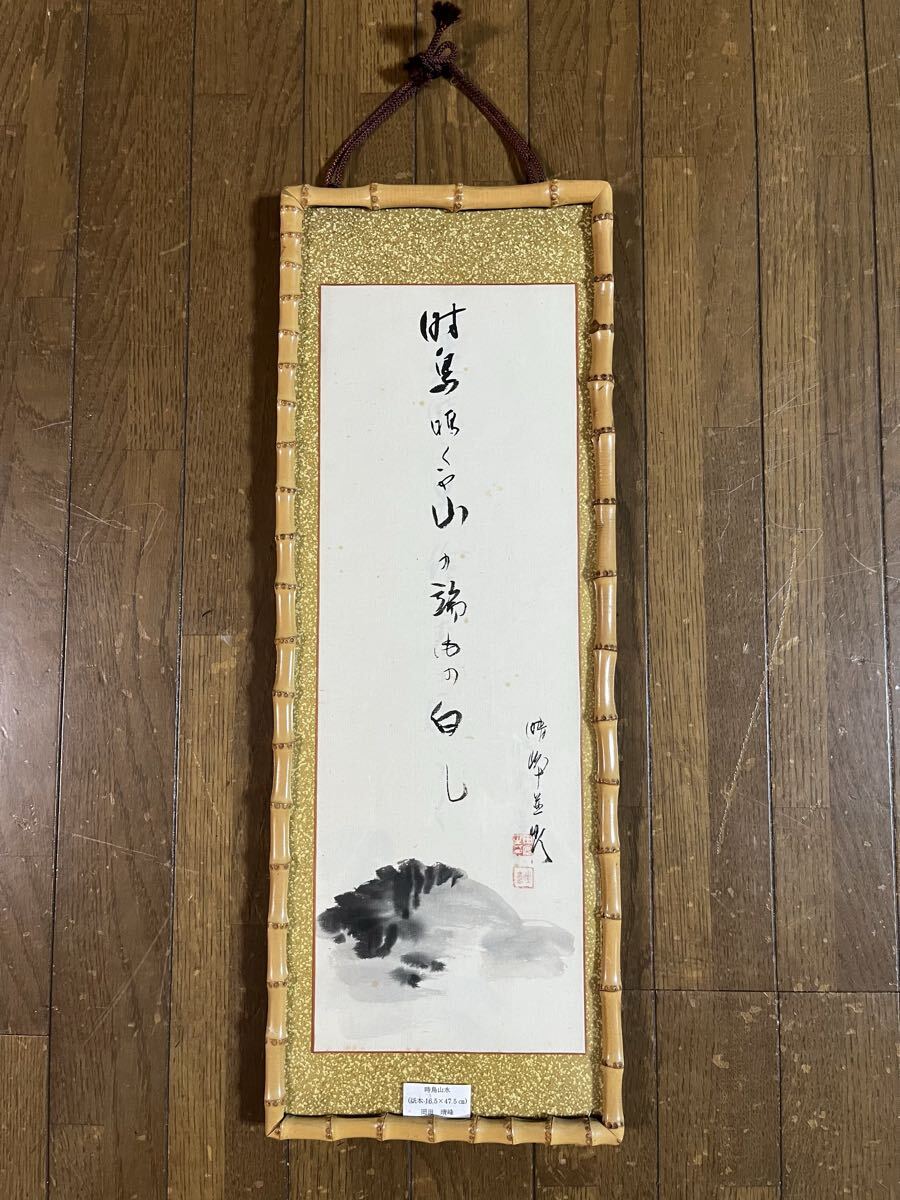 時鳥啼くや山の端ほの白し
晴峰並
時鳥山水
(紙本 16.5×47.5㎝)
岡田 晴峰